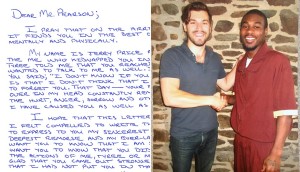 DEAR MR. PEARSON;
I PRAY THAT ON THE
IT FINDS YOU IN THE BEST O
MENTALLY AND PHYSICALLY.
MY NAME IS TERRY PRICE
THE ME WHO KIDNAPPED YOU
THERE TOLD ME THAT YOU
WANTED TO TALK TO ME AS WELL
YOU SAID, "I DON'T KNOW IF YOU
IS THAT I DON'T THINK THAT I
TO FORGET YOU. THAT DAY - YOUR
OVER IN MY HEAD CONSTANTLY
THE HURT, ANGER, SORROW AND
I HAVE CAUSED YOU AS WELL AS
I HOPE THAT THIS LETTER
I FELT COMPELLED TO WRITE
TO EXPRESS TO YOU MY SINCEREST
DEEPEST REMORSE, AND MY
WANT YOU TO KNOW THAT I AM
WANT YOU TO KNOW THAT YOU
THE ACTIONS OF ME, THERE OR
GLAD THAT YOU CAME OUT
THAT I HAD NOT PUT YOU IN THE